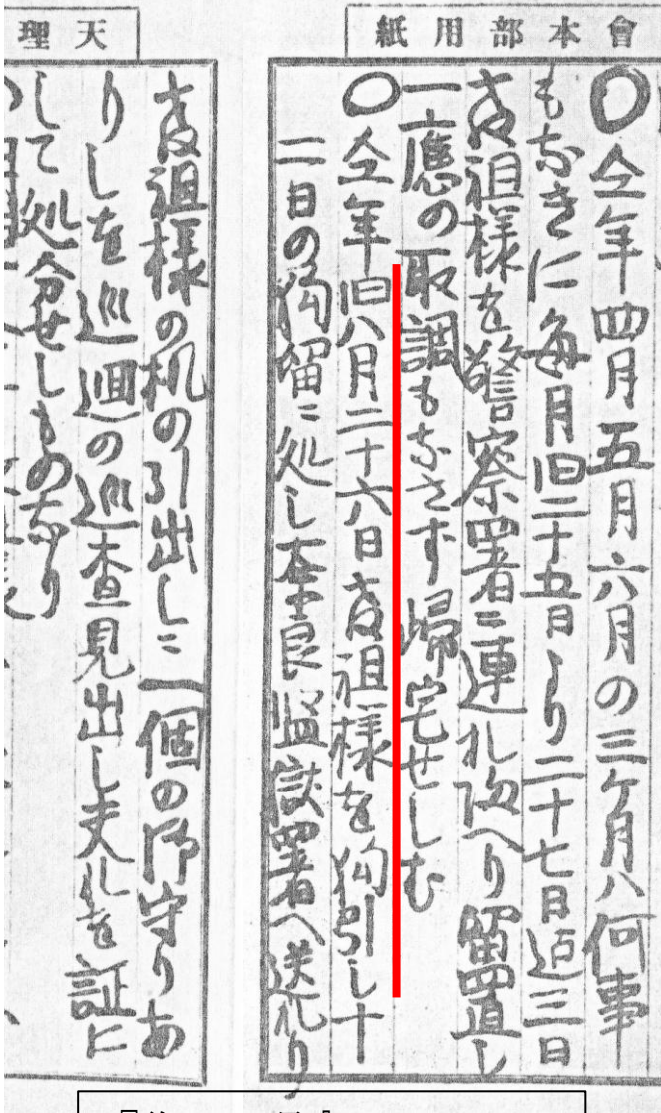 會本部用紙
〇仝年四月五月六月の三ケ月ハ何事
もなきに毎月旧二十五日より二十七日迠三日
教祖様を警察署ニ連れ皈へり留置し
一應の取調もなさず帰宅せしむ
〇仝年旧八月二十六日教祖様を拘引し十
二日の拘留ニ処し奈良監獄署へ送れり
天理
教祖様の机の引出しニ一個の御守りあ
りしを巡廻の巡査見出し夫れを証に
して処分せしものなり